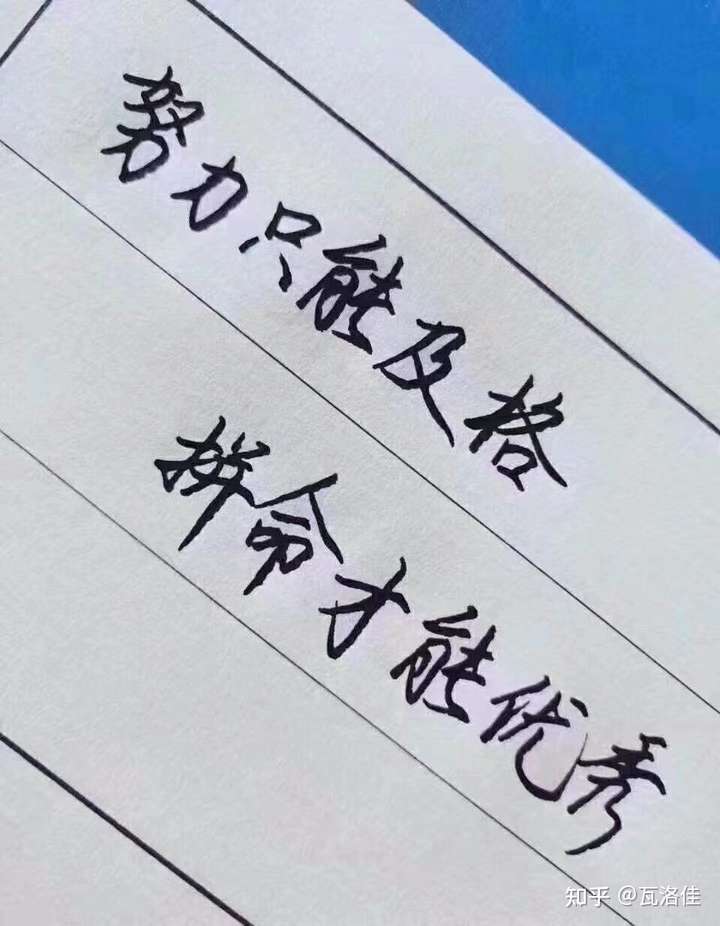 努力只能及格
拼命才能优秀
知乎 @瓦洛佳